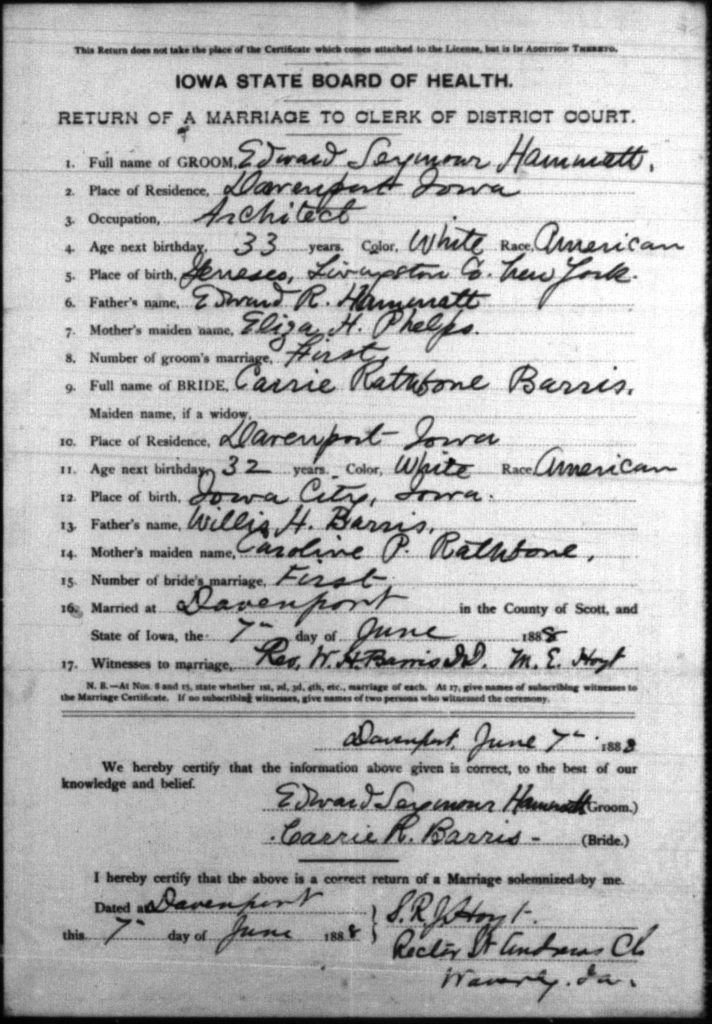 This Return does not take the place of the Certificate which comes attached to the License, but is IN ADDITION THERETO.
IOWA STATE BOARD OF HEALTH.
RETURN OF A MARRIAGE TO CLERK OF DISTRICT COURT.
1. Full name of GROOM, Edward Seymour Hammatt.
2. Place of Residence, Davenport Iowa
3. Occupation, Architect
4. Age next birthday, 33 years. Color, White Race, American
5. Place of birth, Geneseo, Livingston Co. New York.
6. Father's name, Edward R. Hammatt
7. Mother's maiden name, Eliza H. Phelps.
8. Number of groom's marriage, First,
9. Full name of BRIDE, Carrie Rathbone Barris.
Maiden name, if a widow,
10. Place of Residence, Davenport Iowa
11. Age next birthday, 32 years. Color, White Race, American
12. Place of birth, Iowa City, Iowa.
13. Father's name, Willis H. Barris.
14. Mother's maiden name, Caroline P. Rathbone.
15. Number of bride's marriage, First
16. Married at Davenport in the County of Scott, and
State of Iowa, the 7th day of June 1888
17. Witnesses to marriage, Rev. W. H. Barris D.D. M. E. Hoyt
N. B.—At Nos. 8 and 15, state whether 1st, 2d, 3d, 4th, etc., marriage of each. At 17, give names of subscribing witnesses to
the Marriage Certificate. If no subscribing witnesses, give names of two persons who witnessed the ceremony.
Davenport, June 7th 1888
We hereby certify that the information above given is correct, to the best of our
knowledge and belief.
Edward Seymour Hammatt (Groom.)
Carrie R. Barris - (Bride.)
I hereby certify that the above is a correct return of a Marriage solemnized by me.
Dated at Davenport } S. R. J. Hoyt.
this 7th day of June 1888 } Rector St Andrews Ch
Waverly. Ia.